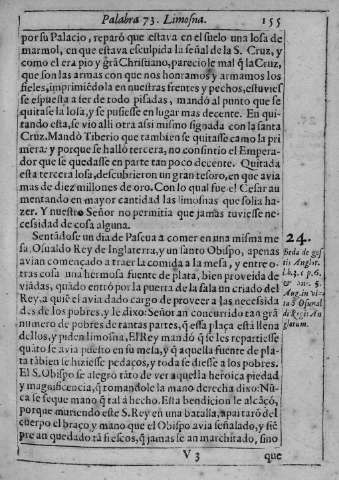 Palabra 73. Limosna. 155
por su Palacio, reparó que estava en el suelo una losa de
marmol, en que estava esculpida la señal de la S. Cruz, y
como el era pio y grã Christiano, pareciole mal q̃ la Cruz,
que son las armas con que nos honramos y armamos los
fieles, imprimiẽdola en nuestras frentes y pechos, estuvies
se espuesta a ser de todo pisadas, mandó al punto que se
quitase la losa, y se pusiesse en lugar mas decente. En qui-
tando esta, se vio alli otra assi mismo signada con la santa
Cruz. Mandó Tiberio que tambien se quitasse como la pri
mera: y porque se halló tercera, no consintio el Empera-
dor que se quedasse en parte tan poco decente. Quitada
esta tercera losa, descubrieron un gran tesoro, en que avia
mas de diez millones de oro. Con lo qual fue el Cesar au
mentando en mayor cantidad las limosnas que solia ha-
zer. Y nuestro Señor no permitia que jamas tuviesse ne-
cessidad de cosa alguna.
Sentãdose un dia de Pascua a comer en una misma me
sa, Osualdo Rey de Inglaterra, y un santo Obispo, apenas
avian començado a traer la comida a la mesa, y entre o-
tras cosa una hermosa fuente de plata, bien proveida de
viãdas, quãdo entró por la puerta de la sala un criado del
Rey, a quiẽ el avia dado cargo de proveer a las necessida
des de los pobres, y le dixo: Señor an concurrido tan grã
numero de pobres de tantas partes, q̃ essa plaça está llena
dellos, y piden limosna, El Rey mandó q̃ se les repartiesse
quãto se avia puesto en su mesa, y q̃ a aquella fuente de pla-
ta tãbien le hiziesse pedaços, y toda se diesse a los pobres.
El S. Obispo se alegró tãto de ver aquella heroica piedad
y magnificencia, q̃ tomandole la mano derecha dixo: Nũ-
ca se seque mano q̃ tal à hecho. Esta bendicion le alcãçó,
porque muriendo este S. Rey en una batalla, apartaró del
cuerpo el braço y mano que el Obispo avia señalado, y siẽ
pre an quedado tã frescos, q̃ jamas se an marchitado, sino
V 3 que
24.
Beda de ges
tis Anglor.
l.h.3. c. 6.
Aug. in vi-
ta S. Osual
di Regis An
glatum.